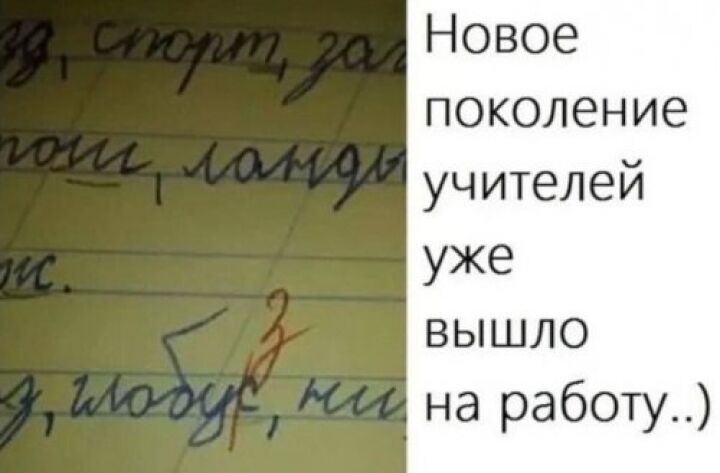 зд, спорт, заг
тош, ланды
ж.
з, глобус, ни
з
Новое
поколение
учителей
уже
вышло
на работу..)